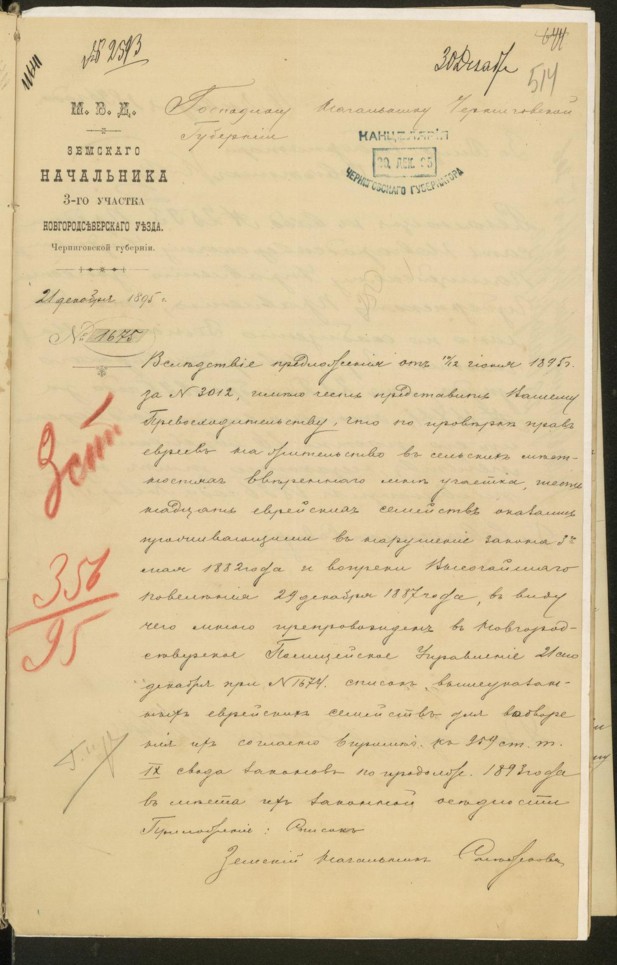 № 2593
30 Декабр
514
М. В. Д.
ЗЕМСКАГО
НАЧАЛЬНИКА
3-ГО УЧАСТКА
НОВГОРОДСѢВЕРСКАГО УѢЗДА.
Черниговской губерніи.
21 декабря 1895 г.
№ 1675
Господину Начальнику Черниговской
Губерніи
КАНЦЕЛЯРІЯ
30. ДЕК. 95
ЧЕРНИГОВСКАГО ГУБЕРНАТОРА
Вслѣдствіе предложенія отъ іюня 1895 г.
за N 3012, имѣю честь представить Вашему
Превосходительству, что по провѣркѣ правъ
евреевъ на жительство въ сельскихъ мѣст-
ностяхъ ввѣреннаго мнѣ участка, шест-
надцать еврейскихъ семействъ оказались
проживающими въ нарушеніе закона 3го
мая 1882 года и вопреки Высочайшаго
повелѣнія 29 декабря 1887 года, въ виду
чего мною препровожденъ въ Новгород-
сѣверское Полицейское Управленіе 21 сего
декабря при N 1674. списокъ вышеуказан-
ныхъ еврейскихъ семействъ для водворе
нія ихъ согласно примѣч. къ 959 ст. т.
IX свода законовъ по продолж. 1893 года
въ мѣста ихъ законной осѣдлости
Приложеніе: Списокъ
Земскій Начальникъ
3 ст.
356
95